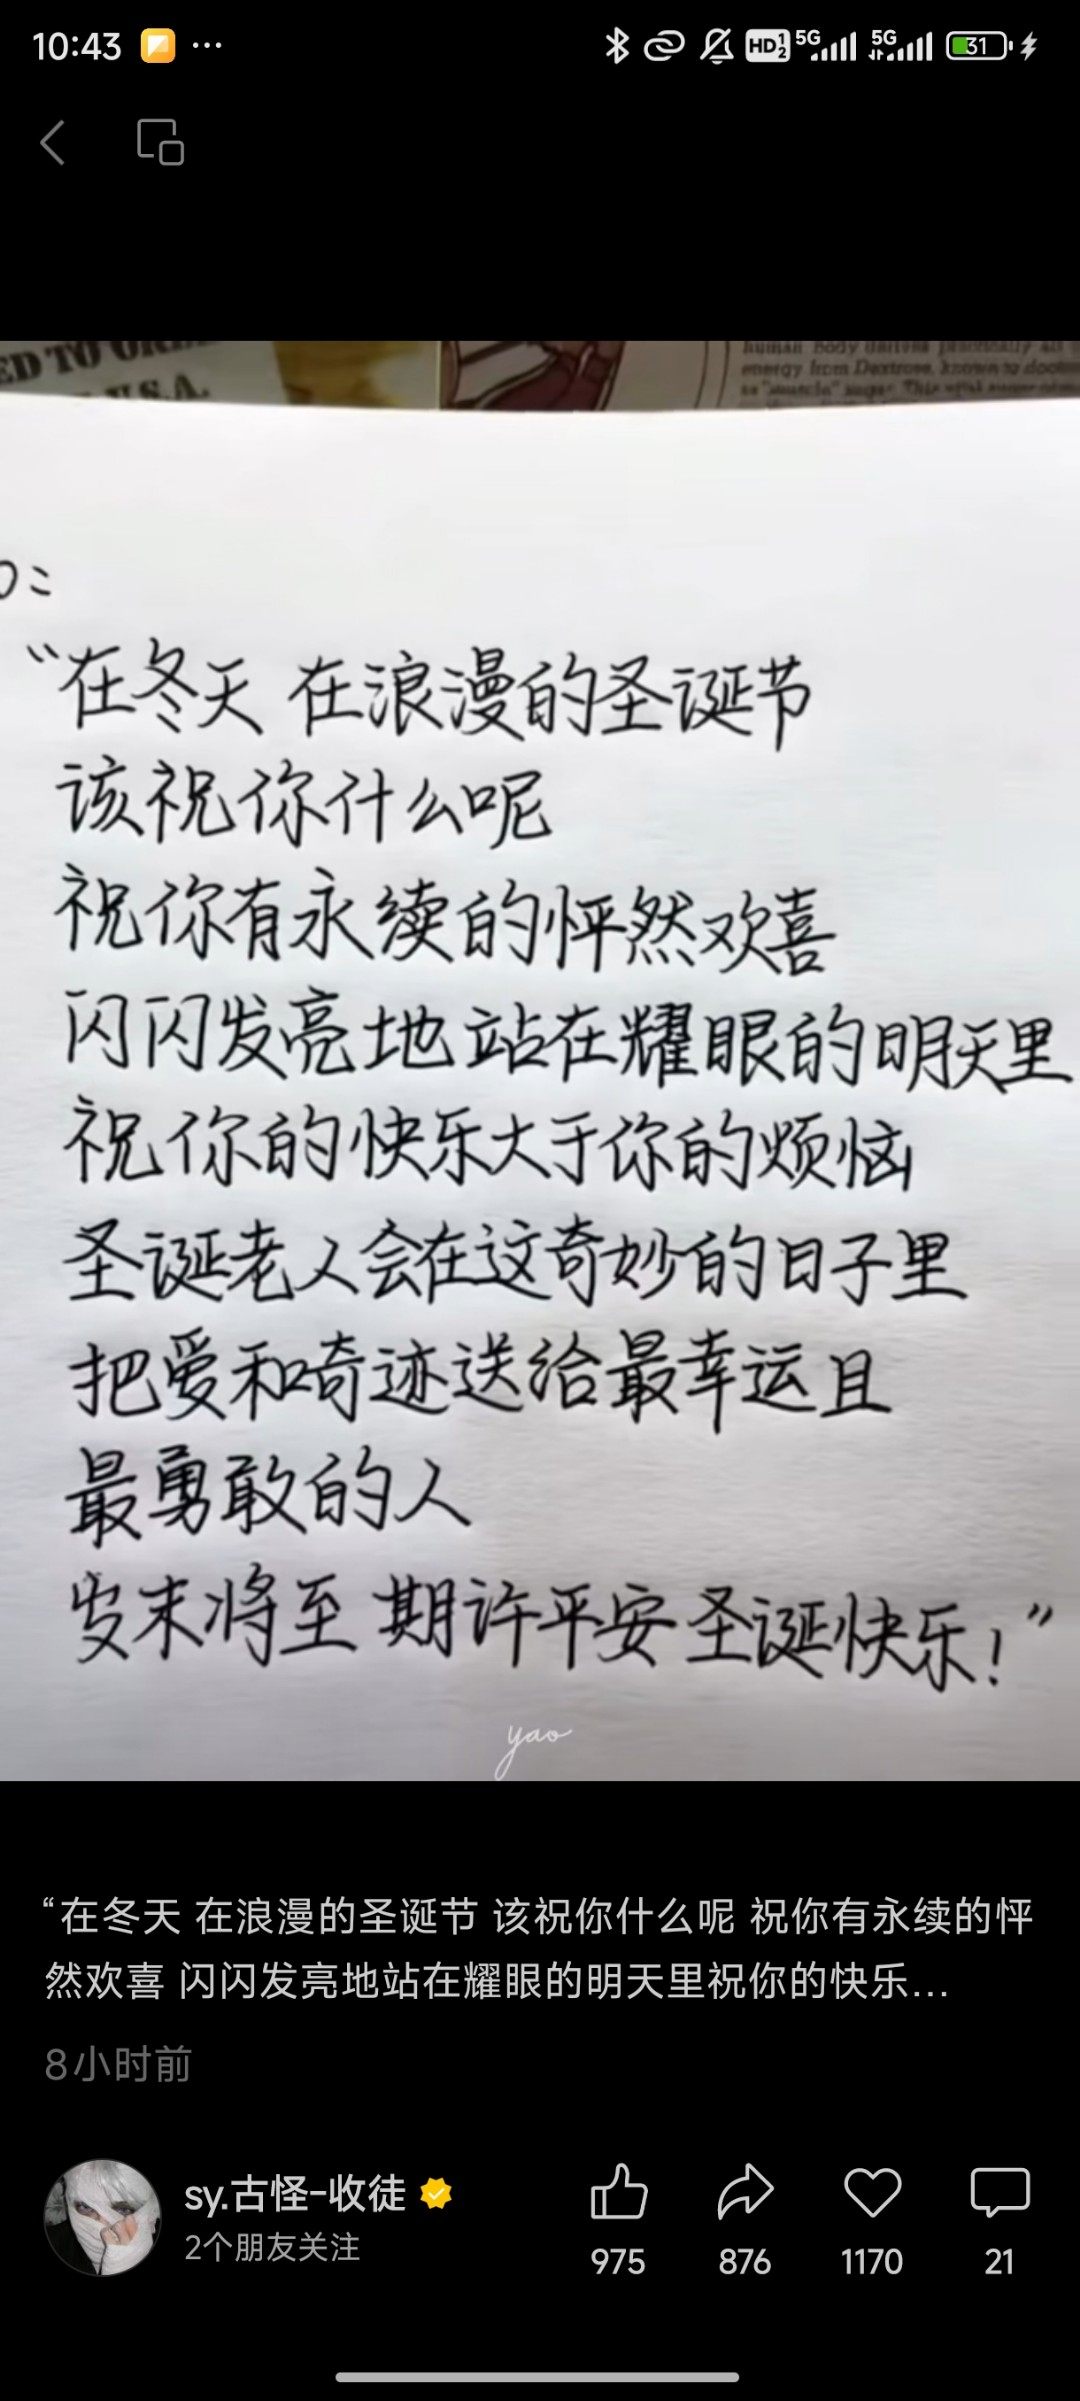 10:43
HD 1 2 5G 5G 31
ED TO
U.S.A.
human body derives practically all
energy from Dextrose, known to
as "muscle" sugar. This
“在冬天 在浪漫的圣诞节
该祝你什么呢
祝你有永续的怦然欢喜
闪闪发亮地站在耀眼的明天里
祝你的快乐大于你的烦恼
圣诞老人会在这奇妙的日子里
把爱和奇迹送给最幸运且
最勇敢的人
岁末将至 期许平安 圣诞快乐！”
yao
“在冬天 在浪漫的圣诞节 该祝你什么呢 祝你有永续的怦
然欢喜 闪闪发亮地站在耀眼的明天里祝你的快乐...
8小时前
sy.古怪-收徒
2个朋友关注
975 876 1170 21